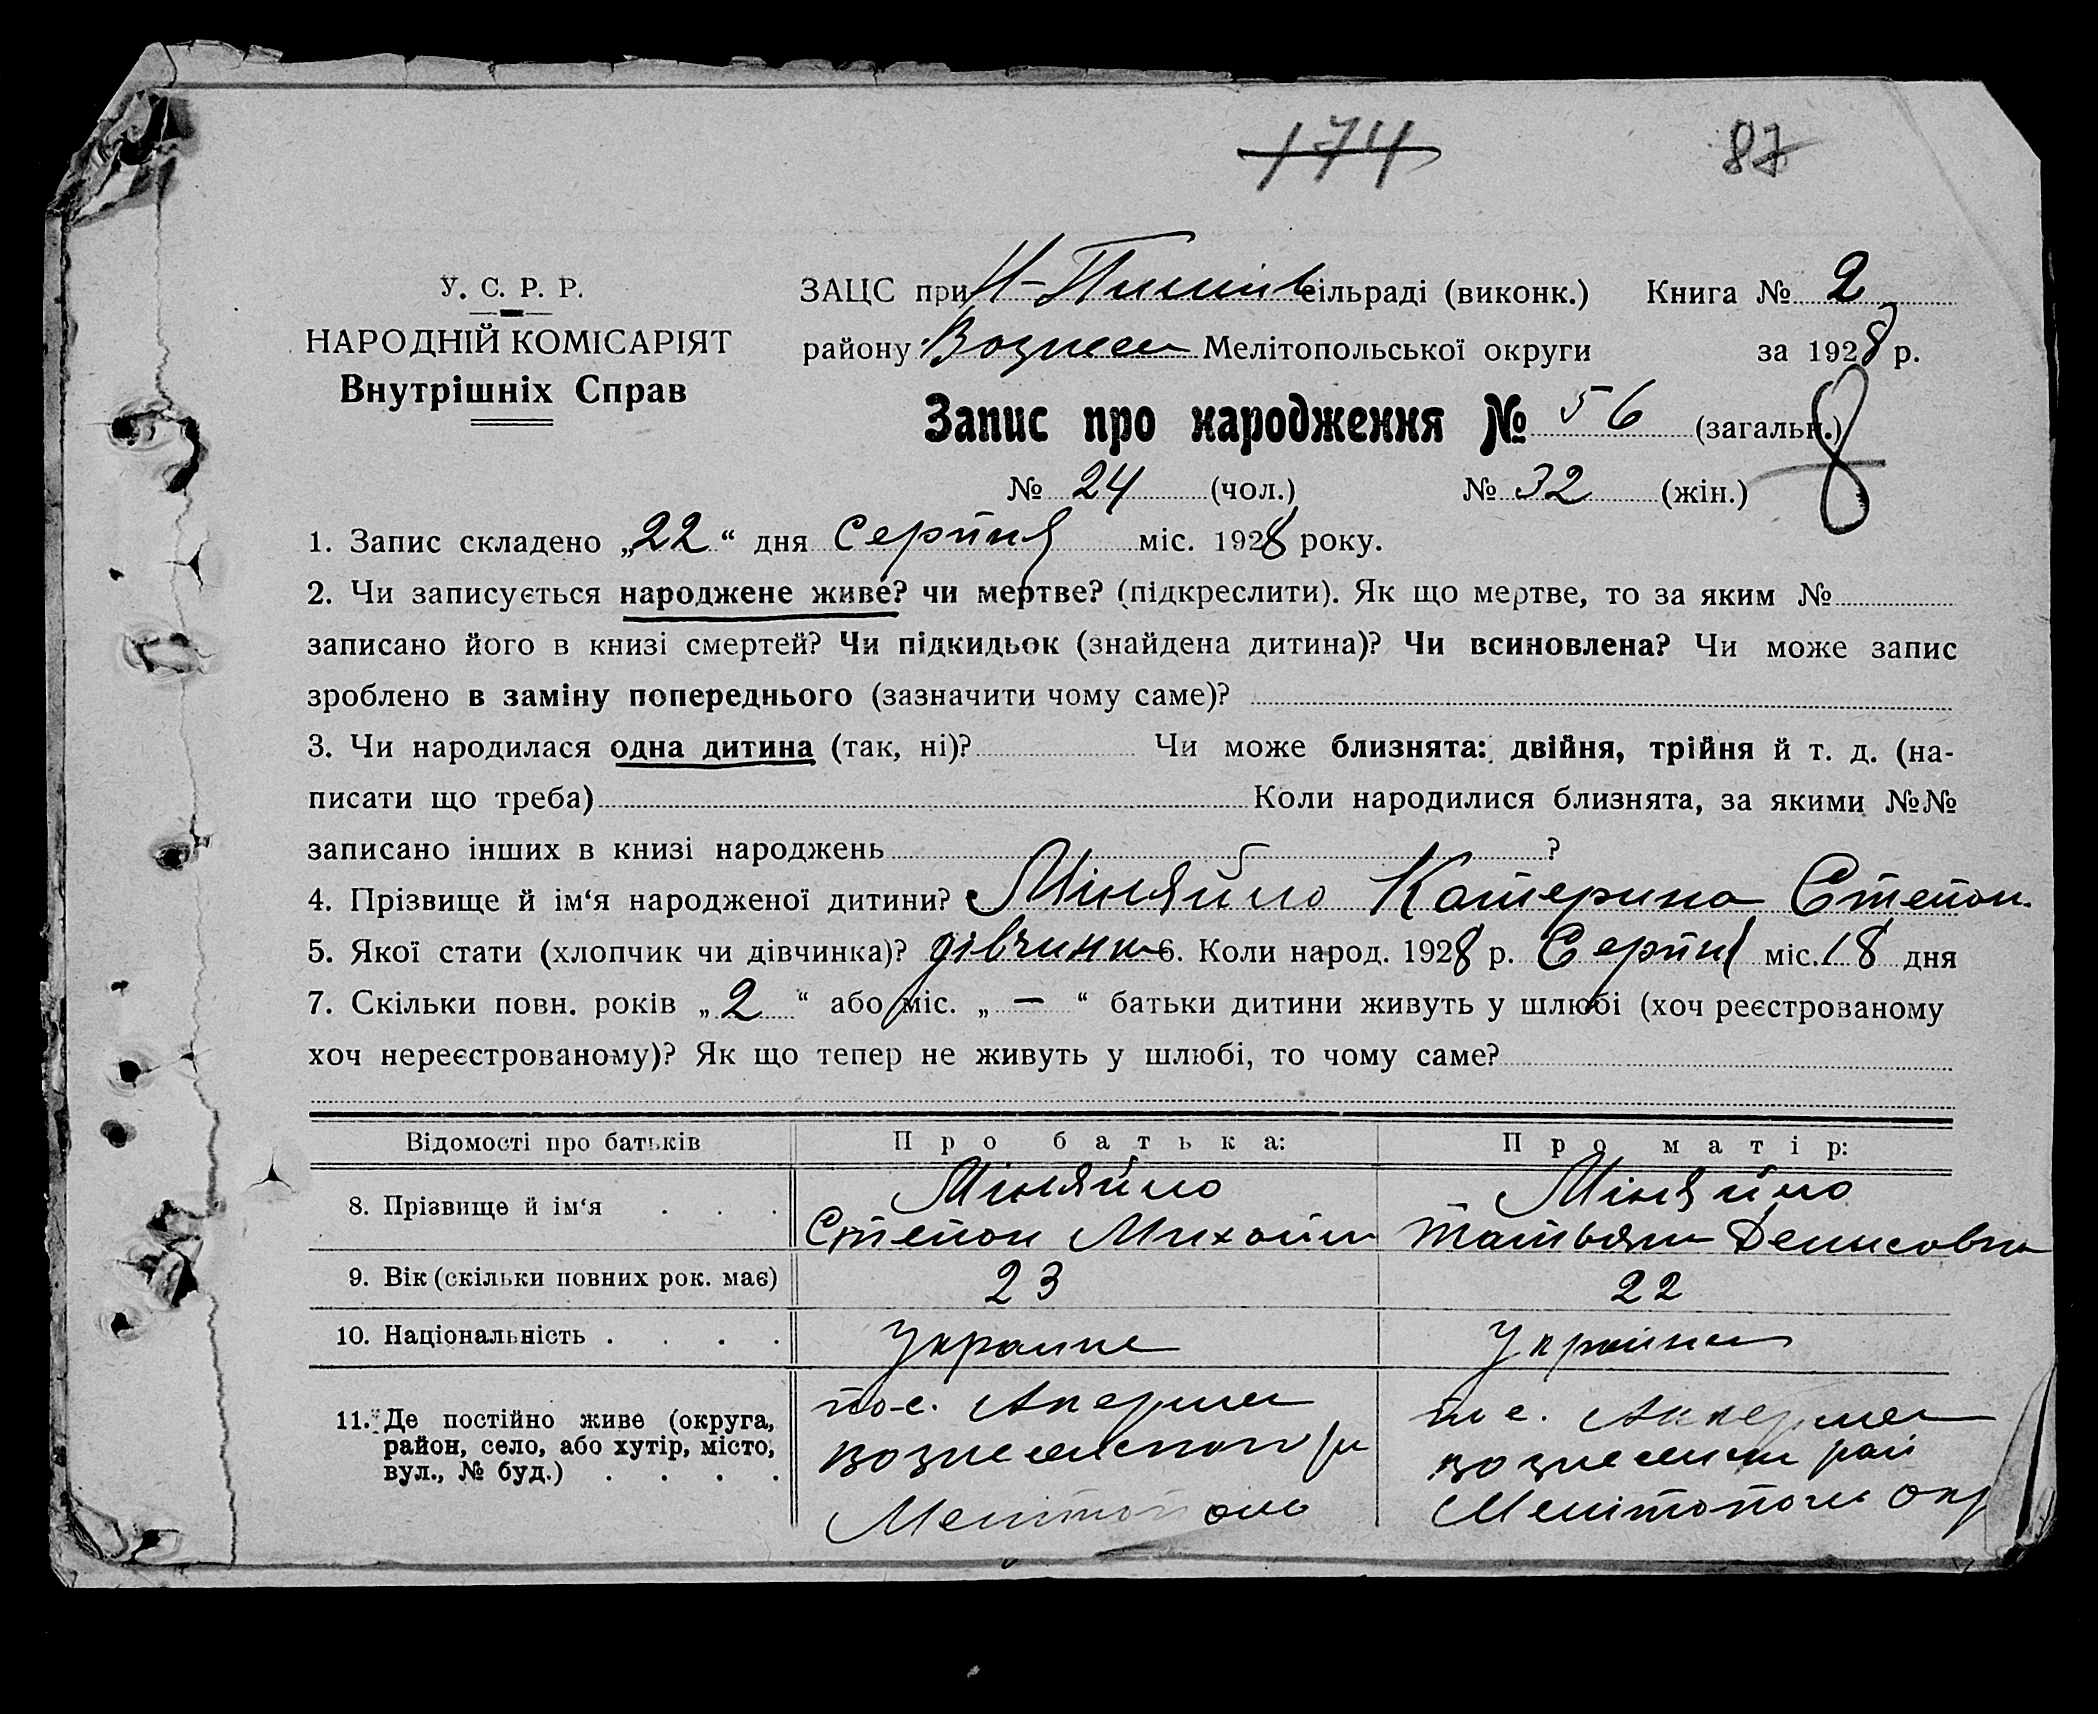 174 87
У. С. Р. Р.
НАРОДНІЙ КОМІСАРІЯТ
Внутрішніх Справ
ЗАЦС при сільраді (виконк.) Книга № 2
району Вознесен Мелітопольської округи за 1928 р.
Запис про народження № 56 (загальн.)
8
№ 24 (чол.) № 32 (жін.)
1. Запис складено „22“ дня Серпня міс. 1928 року.
2. Чи записується народжене живе? чи мертве? (підкреслити). Як що мертве, то за яким №
записано його в книзі смертей? Чи підкидьок (знайдена дитина)? Чи всиновлена? Чи може запис
зроблено в заміну попереднього (зазначити чому саме)?
3. Чи народилася одна дитина (так, ні)? Чи може близнята: двійня, трійня й т. д. (на-
писати що треба) Коли народилися близнята, за якими №№
записано інших в книзі народжень ?
4. Прізвище й ім‘я народженої дитини? Міняйло Катерина Степан.
5. Якої стати (хлопчик чи дівчинка)? дівчинка 6. Коли народ. 1928 р. Серпня міс. 18 дня
7. Скільки повн. років „2“ або міс. „—“ батьки дитини живуть у шлюбі (хоч реєстрованому
хоч нереєстрованому)? Як що тепер не живуть у шлюбі, то чому саме?
Відомості про батьків Про батька: Про матір:
8. Прізвище й ім‘я . . . Міняйло Міняйло
Степан Михайл Татьяна Денисовна
9. Вік (скільки повних рок. має) 23 22
10. Національність . . . . Украине Украінка
11. Де постійно живе (округа, район, село, або хутір, місто, вул., № буд.) . . . .
по с. Акермен по с. Аккермен
вознесенского р вознесенск рай
Мелітополь Мелітополь окр